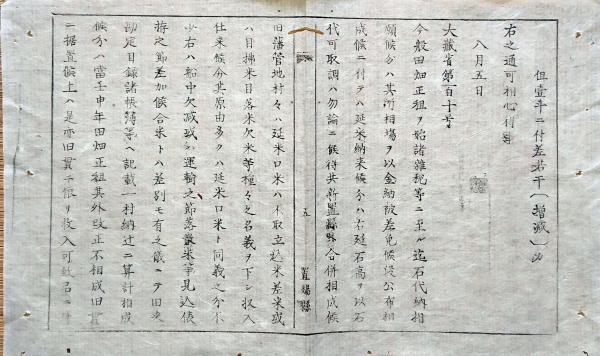 但壹斗ニ付差若干(増減)必
右之通可相心得事
八月五日
大蔵省第百十号
今般田畑正租ヲ始諸雑税等ニ至ル迄石代納相
願候分ハ其所相場ヲ以金納被差免候侵公布相
成候ニ付テハ延米納来候分ハ右延石高ヲ以石
代可取調ハ勿論ニ候得共新置縣外合併相成候
五
置賜縣
旧藩管地村々ハ延米口米ハ不取立起米差米或
ハ自掃米目落米欠米等種々之名義ヲ下シ収入
仕来候分其原由多クハ延米口米ト同義之分不
少右ハ船中欠減或ハ運輸之節落散米等見込俵
拵之節差加候合米トハ差別モ有之儀ニテ旧来
勘定目録諸帳簿等ヘ記載一村納辻ニ算計相成
候分ハ當壬申年田畑正租其外改正不相成旧貫
ニ据置候上ハ是亦旧貫ニ依リ収入可致名ニ